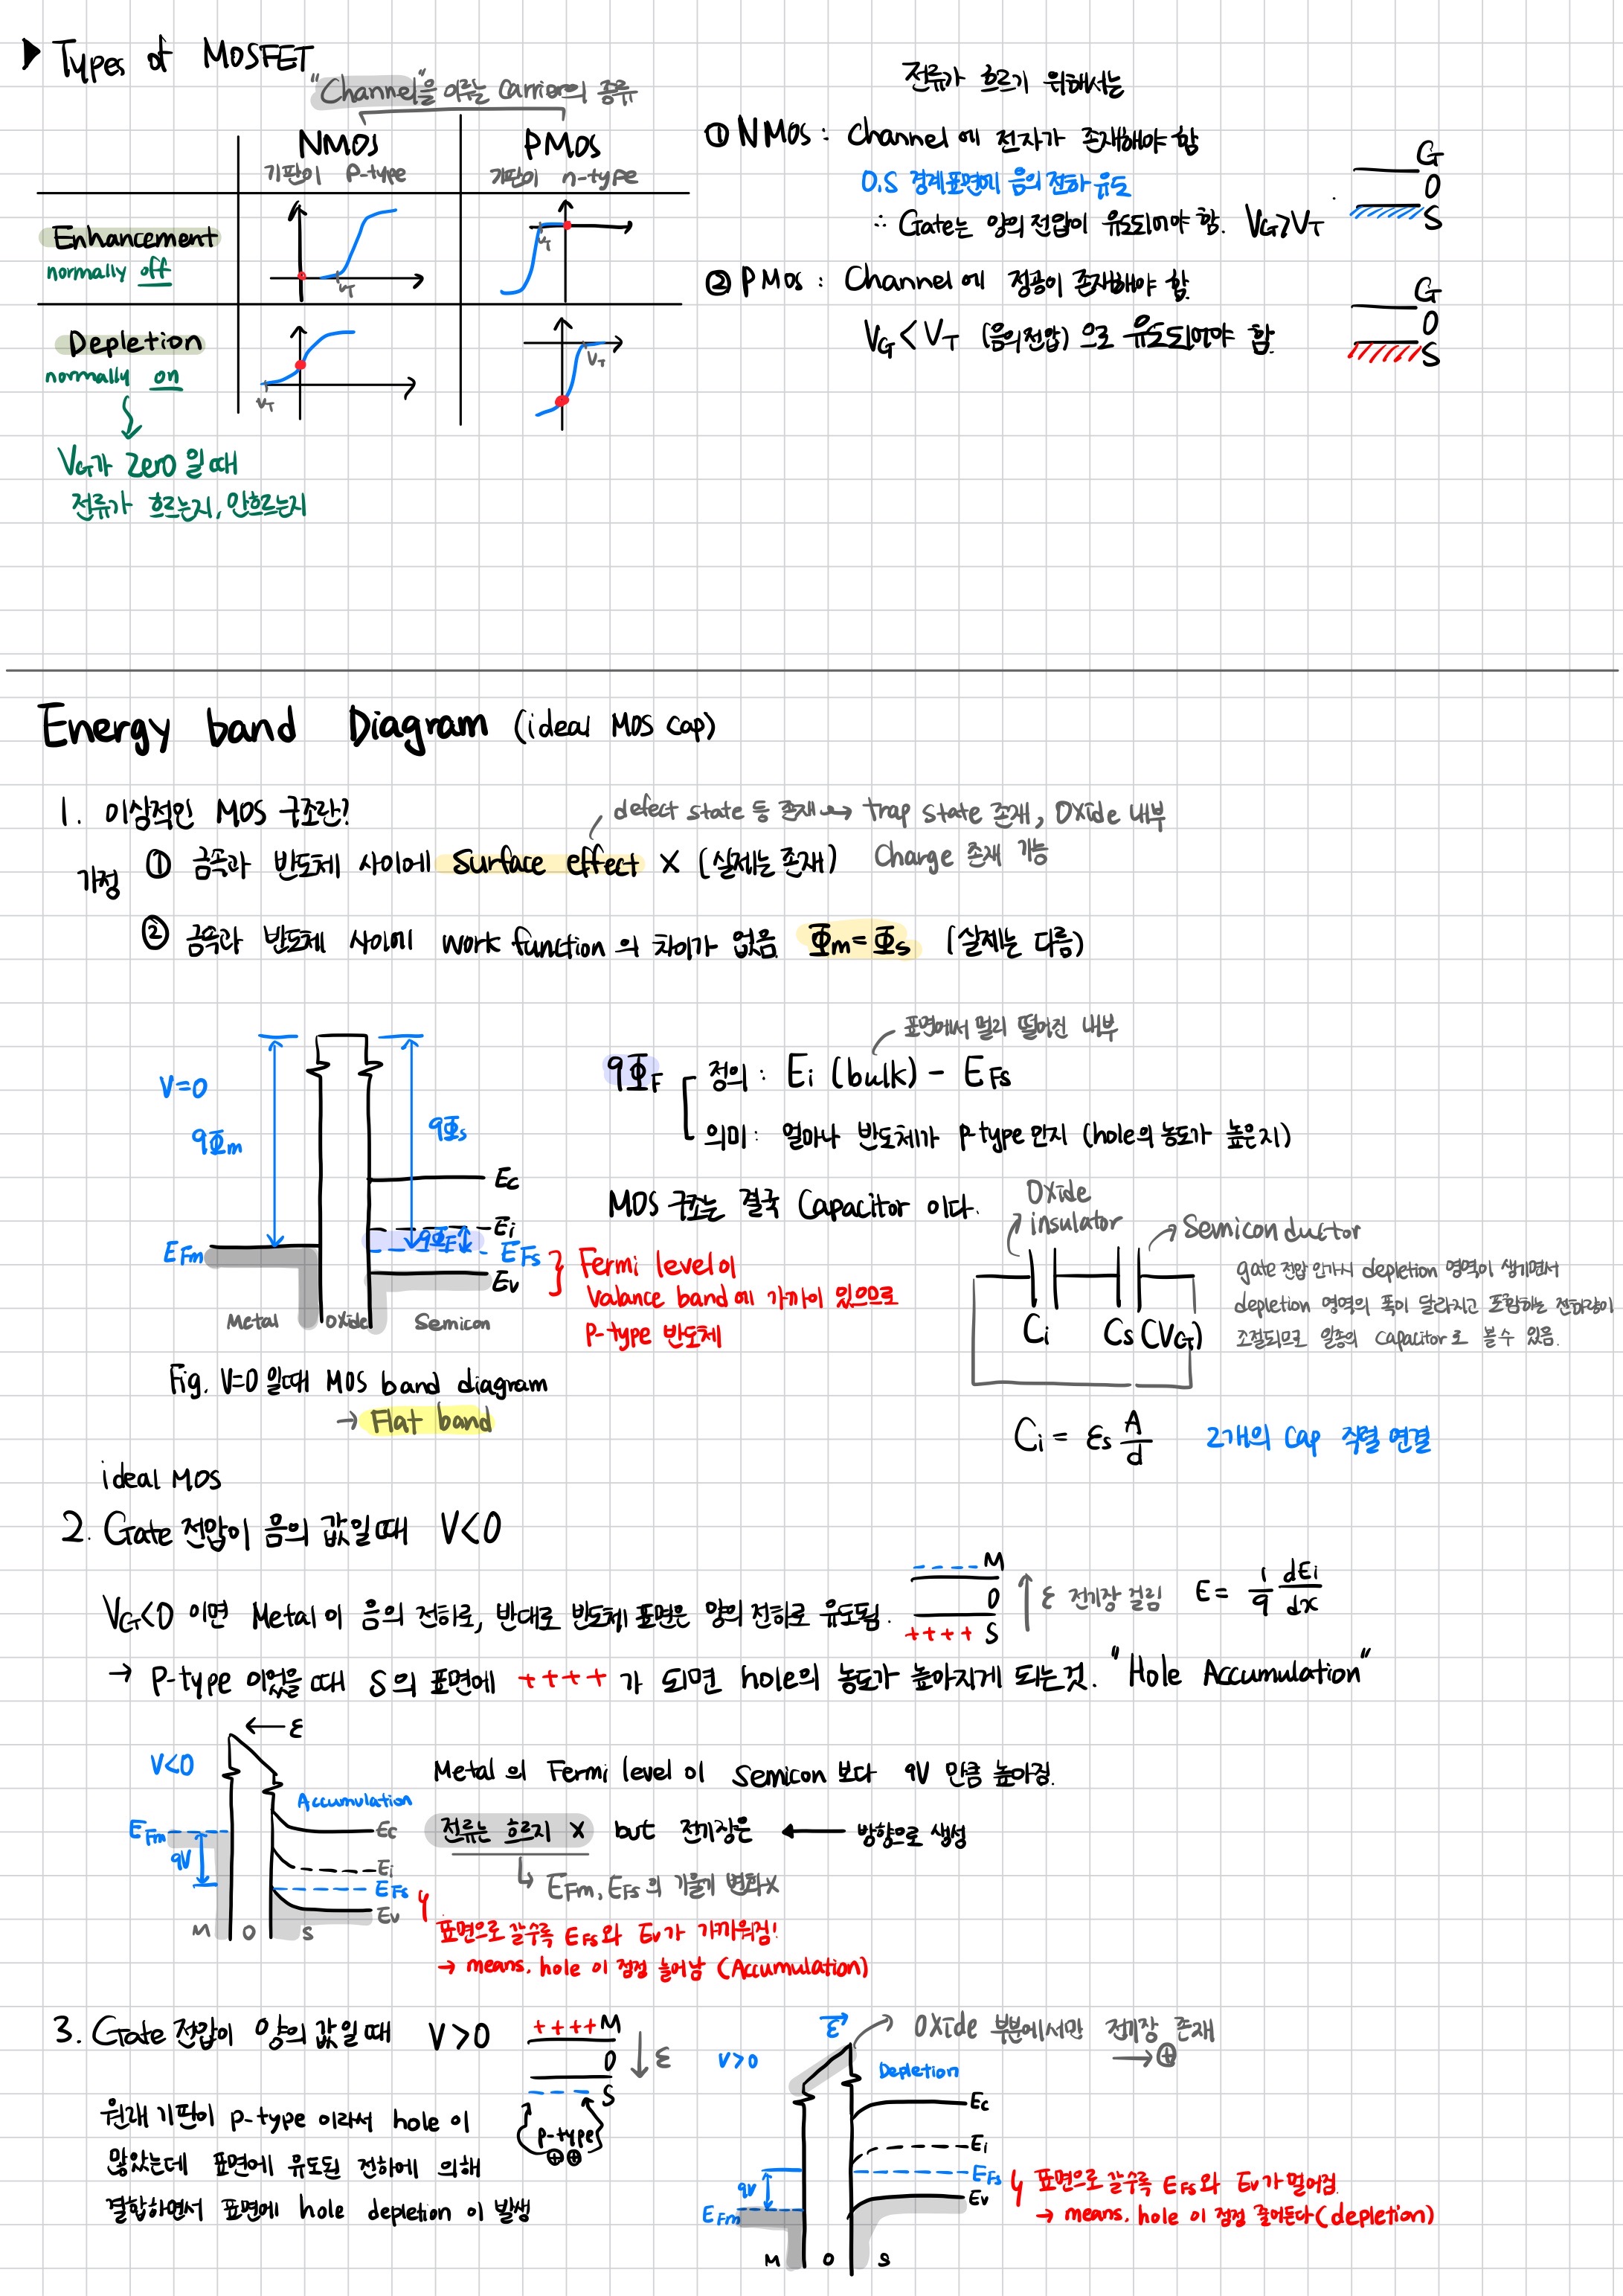 ▶ Types of MOSFET
"Channel"을 이루는 Carrier의 종류
NMOS
PMOS
기판이 P-type
기판이 n-type
Enhancement
normally off
V_T
V_T
Depletion
normally on
V_T
V_T
V_G가 Zero 일때
전류가 흐르는지, 안흐르는지
전류가 흐르기 위해서는
① NMOS : Channel에 전자가 존재해야 함
O.S 경계표면에 음의 전하 유도
∴ Gate는 양의 전압이 유도되어야 함. V_G>V_T
G
O
S
② PMOS : Channel에 정공이 존재해야 함.
V_G < V_T (음의전압) 으로 유도되어야 함.
G
O
S
Energy band Diagram (ideal MOS Cap)
1. 이상적인 MOS 구조란?
defect state 등 존재 → trap state 존재, Oxide 내부
Charge 존재 가능
가정
① 금속과 반도체 사이에 Surface effect X (실제는 존재)
② 금속과 반도체 사이에 work function의 차이가 없음 Φm=Φs (실제는 다름)
V=0
qΦm
qΦs
Ec
Ei
qΦF
EFm
EFs
Ev
Metal
oxide
Semicon
Fermi level이
Valance band에 가까이 있으므로
P-type 반도체
Fig. V=0 일때 MOS band diagram
→ Flat band
표면에서 멀리 떨어진 내부
qΦF
정의 : Ei (bulk) - EFs
의미 : 얼마나 반도체가 P-type 인지 (hole의 농도가 높은지)
MOS 구조는 결국 Capacitor 이다.
Oxide
insulator
Semiconductor
Ci
Cs (V_G)
gate 전압 인가시 depletion 영역이 생기면서
depletion 영역의 폭이 달라지고 포함하는 전하량이
조절되므로 일종의 capacitor로 볼수 있음.
Ci = εs A/d
2개의 Cap 직렬 연결
ideal MOS
2. Gate 전압이 음의 값일때 V<0
V_G<0 이면 Metal이 음의 전하로, 반대로 반도체 표면은 양의 전하로 유도됨.
---- M
O
++++ S
↑ ε 전기장 걸림 E = 1/q dEi/dx
→ P-type 이었을 때 S의 표면에 ++++ 가 되면 hole의 농도가 높아지게 되는것. "Hole Accumulation"
← ε
V<0
Accumulation
EFm
qV
Ec
Ei
EFs
Ev
M O S
Metal의 Fermi level이 Semicon 보다 qV 만큼 높아짐.
전류는 흐르지 X but 전기장은 ← 방향으로 생성
EFm, EFs의 기울기 변화 X
표면으로 갈수록 EFs와 Ev가 가까워짐!
→ means. hole이 점점 늘어남 (Accumulation)
3. Gate 전압이 양의 값일때 V>0
++++ M
O
--- S
↓ ε
p-type
⊕⊕
원래 기판이 p-type 이라서 hole이
많았는데 표면에 유도된 전하에 의해
결합하면서 표면에 hole depletion이 발생
ε
Oxide 부분에서만 전기장 존재
→ ⊕
V>0
Depletion
Ec
Ei
EFs
Ev
qV
EFm
M O S
표면으로 갈수록 EFs와 Ev가 멀어짐.
→ means. hole이 점점 줄어든다 (depletion)